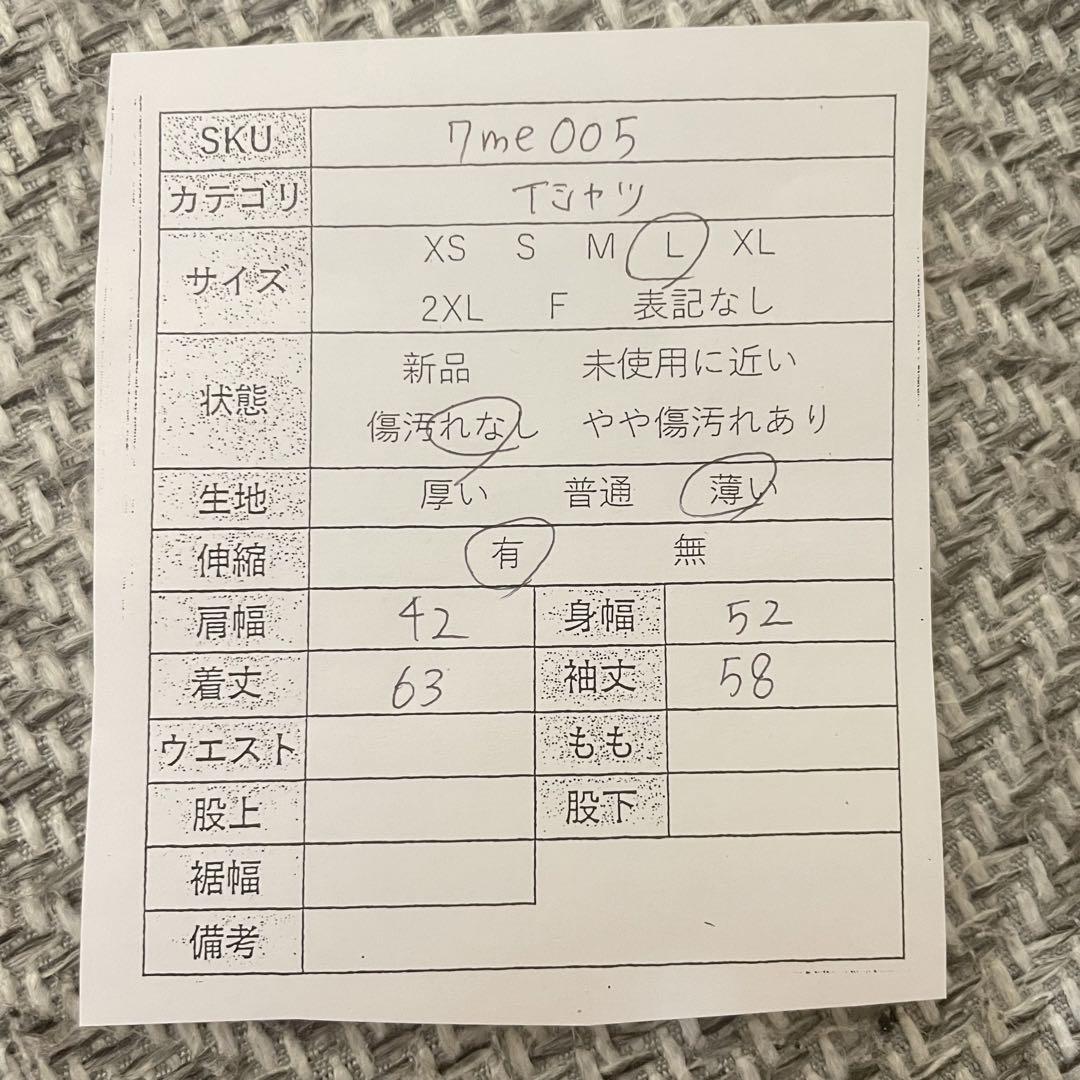 SKU 7me005
カテゴリ Tシャツ
サイズ XS S M L XL
2XL F 表記なし
状態 新品 未使用に近い
傷汚れなし やや傷汚れあり
生地 厚い 普通 薄い
伸縮 有 無
肩幅 42 身幅 52
着丈 63 袖丈 58
ウエスト もも
股上 股下
裾幅
備考